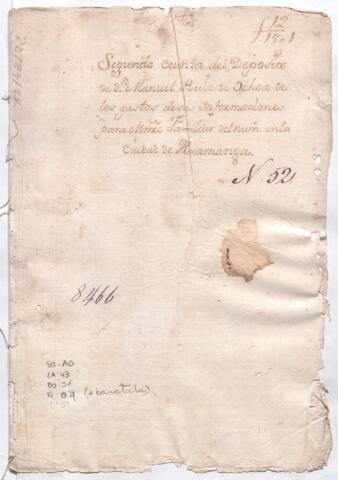 f 12
1801
Segunda Cuenta del Deposito
de Dn. Manuel Ruiz de Ochoa de
los gastos de sus Informaciones
para Mntro Familiar del num. en la
Ciudad de Huamanga.
N 52.
8466
SO-AO
CA 43
DO 51
(+ caratula)